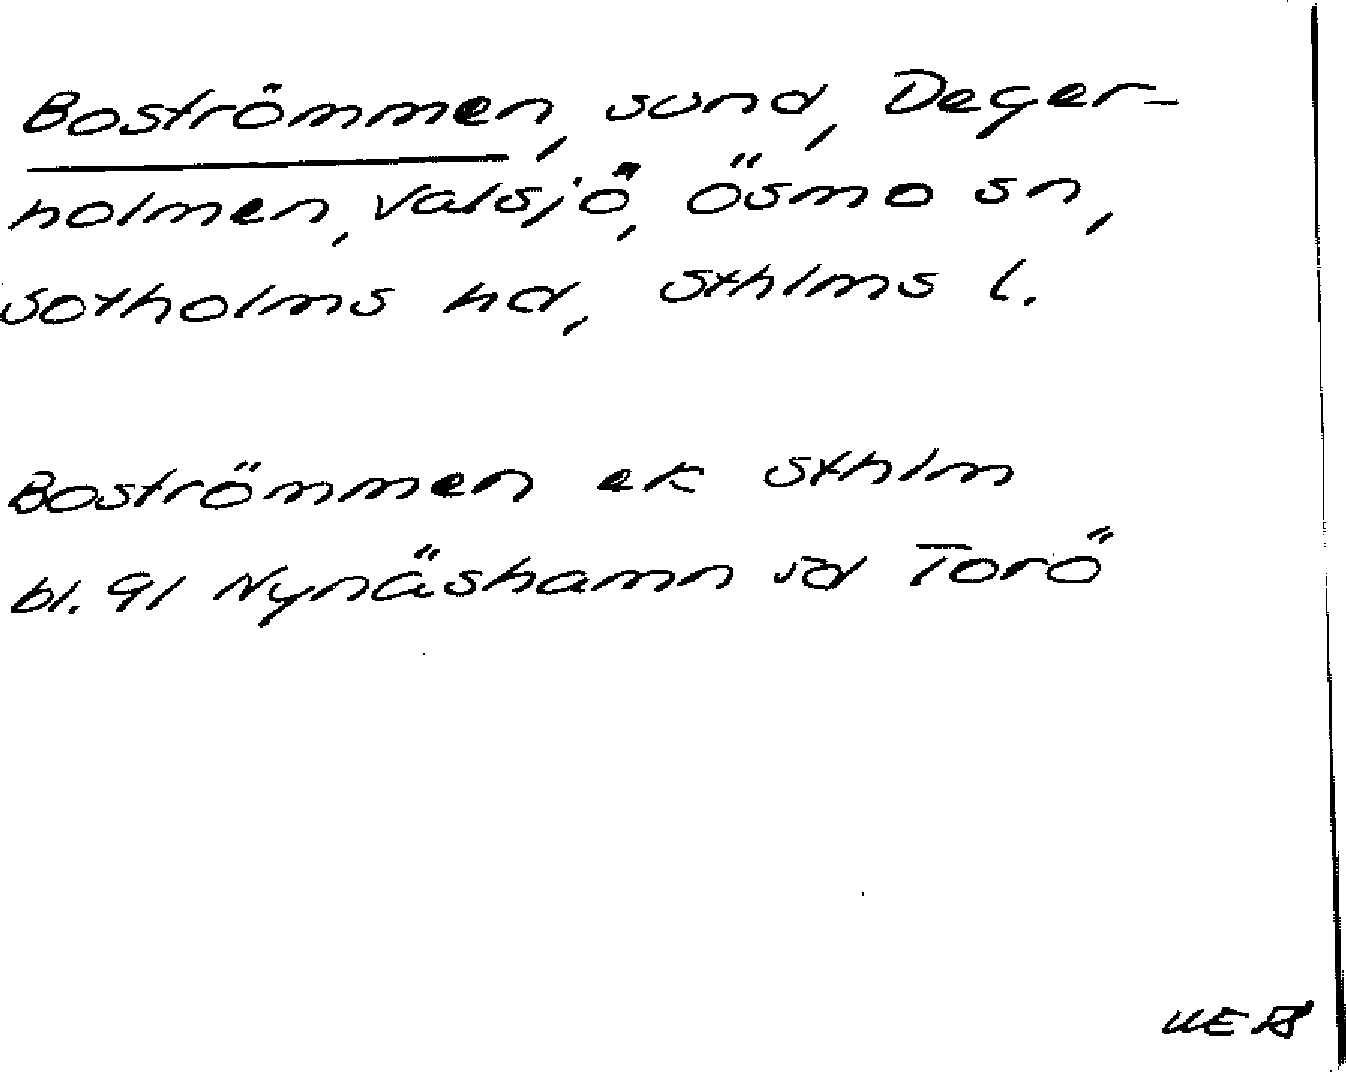 Boströmmen, sund, Deger-
holmen, Valsjö, Ösmo sn,
Sotholms hd, Sthlms l.
Boströmmen ek Sthlm
bl. 91 Nynäshamn sd Torö